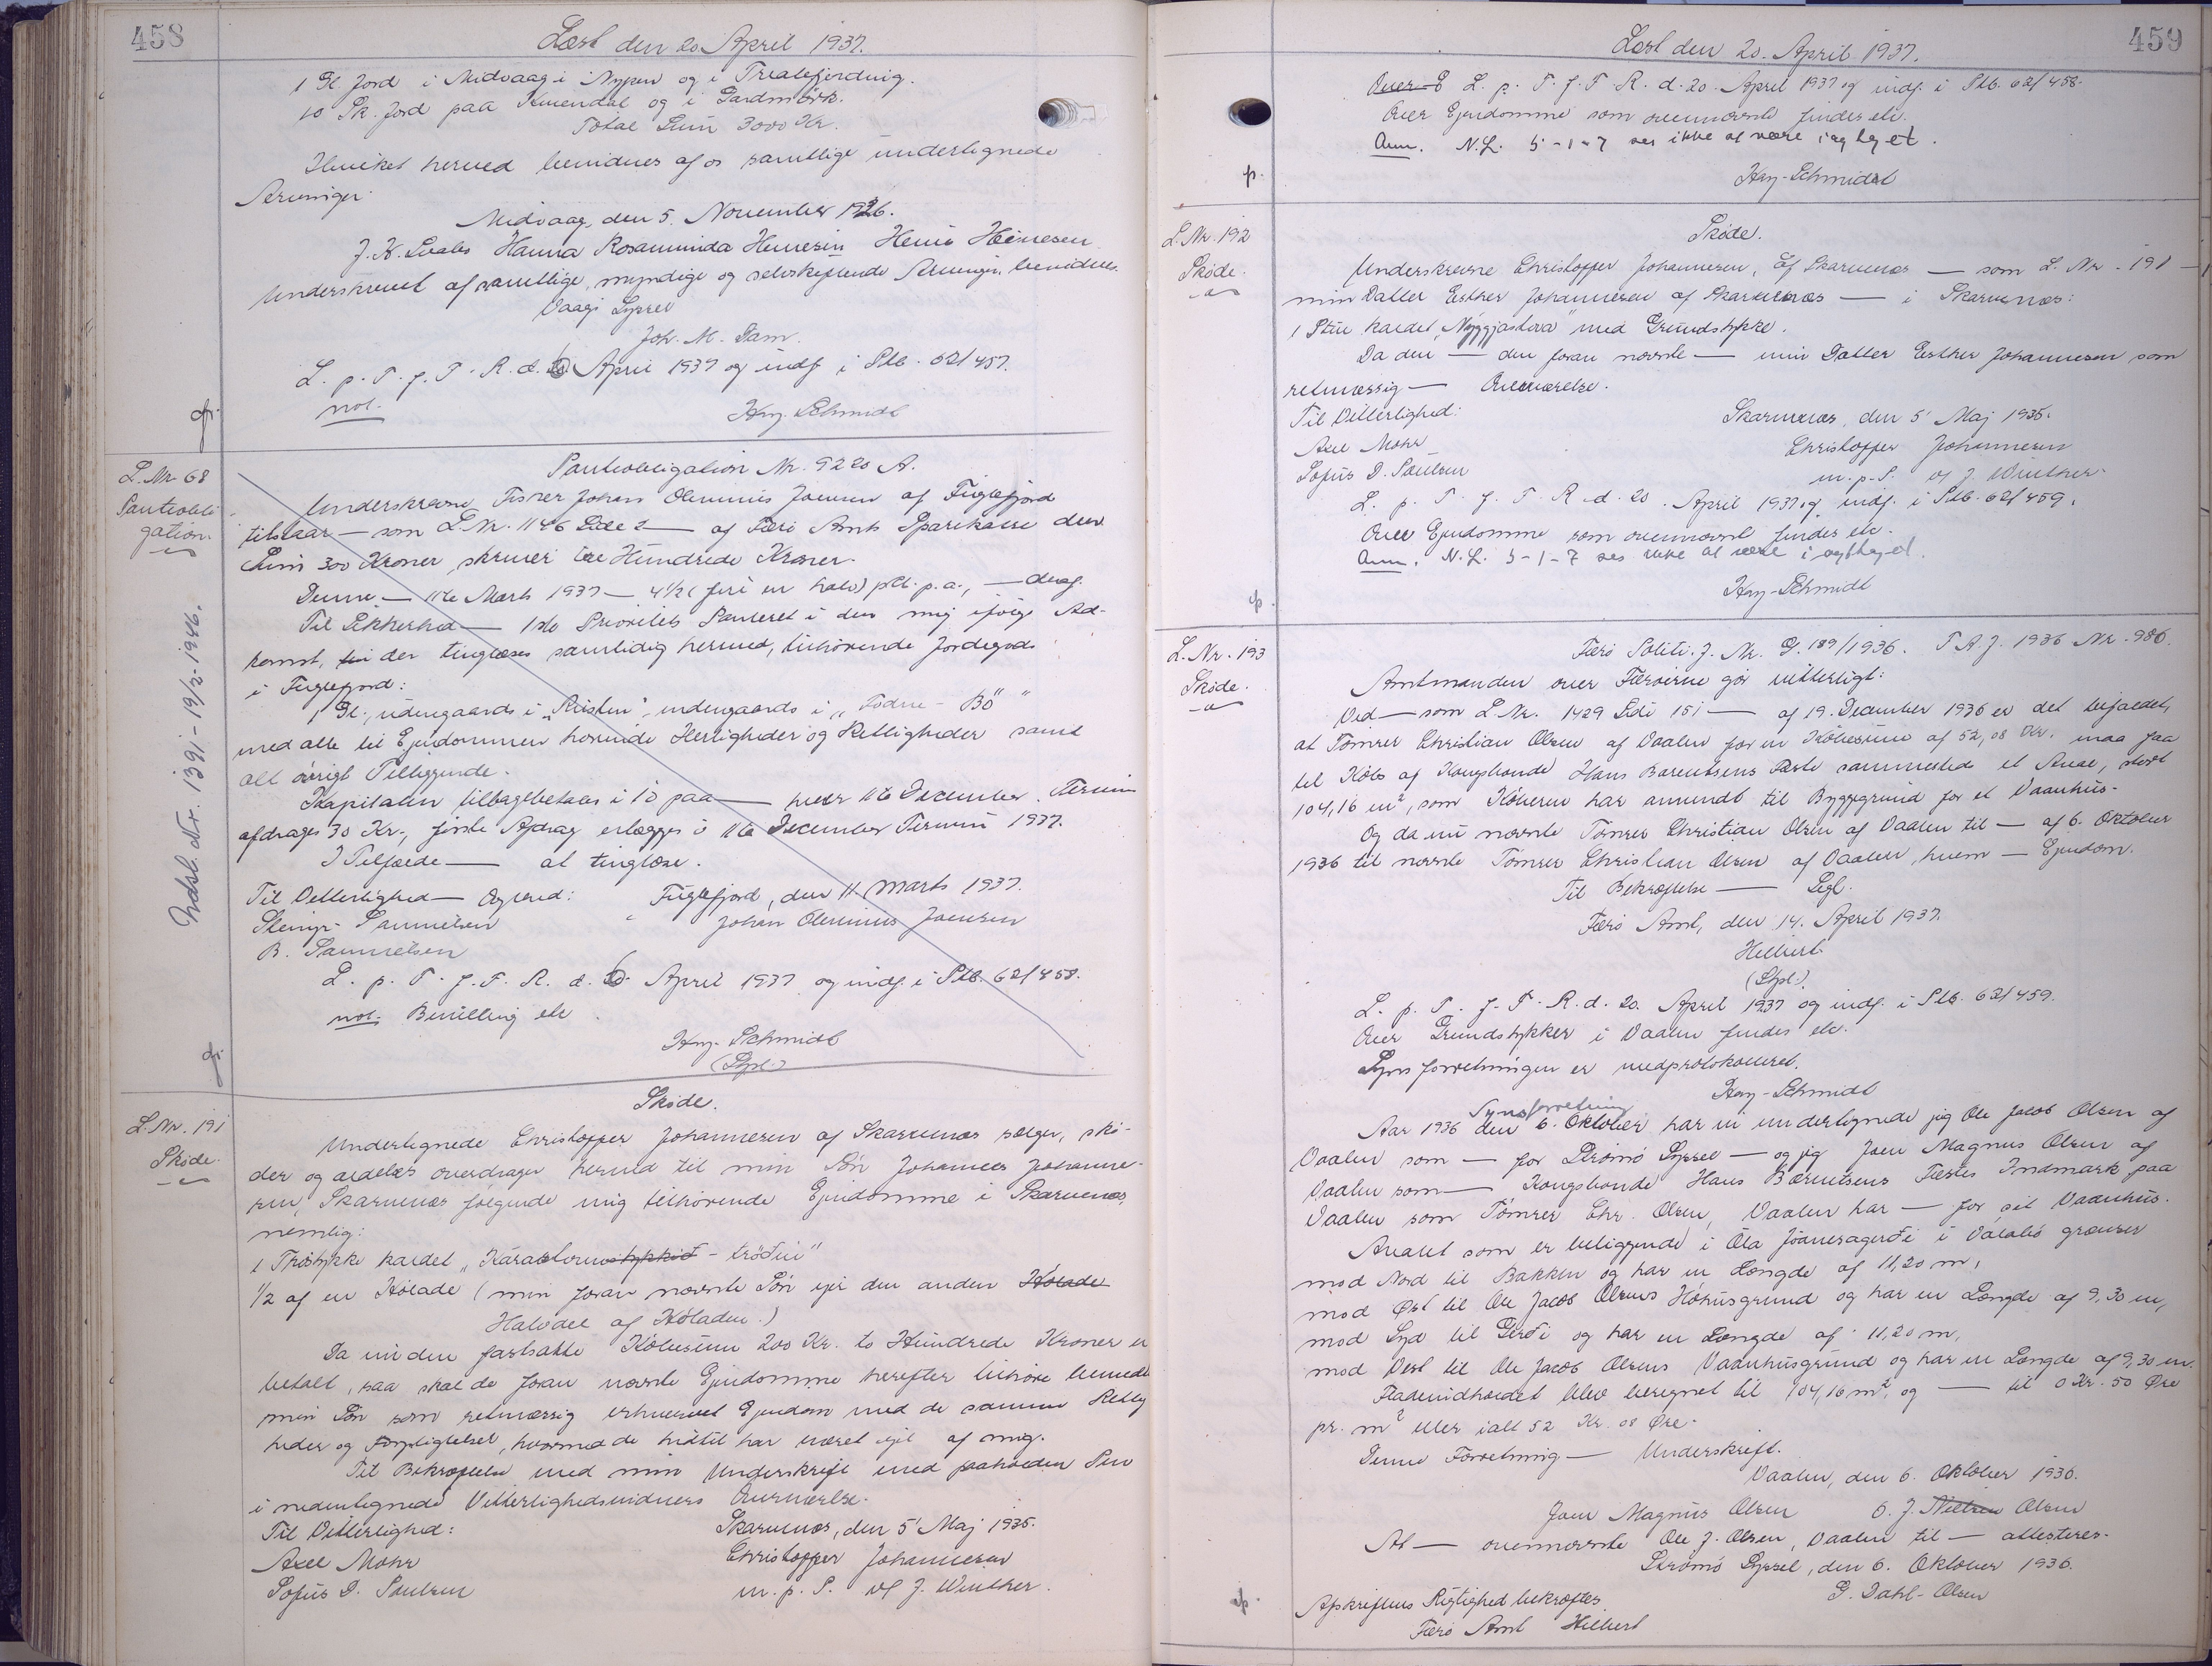 458
Læst den 20. April 1937.
1 Gl. Jord i Midvaag i Nypen og i
10 Sk. Jord paa Kvendal og i Gardmörk.
Total Sum 3000 Kr.
Hvilket herved bevidnes af os samtlige undertegnede
Arvinger.
Midvaag, den 5. November 1926.
J. K. Hanna Rosamunda Heinesen Heine Heinesen
Underskrevet af samtlige, myndige og selvskiftende Arvinger, bevidnes.
Vaagø Syssel
Joh. M. Dam.
L. p. T. f. F. R. d. 20 April 1937 og indf. i Skb. 62/457.
not.
Hny-Schmidt
L. Nr. 68
Pantobli-
gation.
Indsl. Nr. 1391 - 19/2-1946.
Pantobligation Nr. 9220 A.
Underskrevne Fisker Johan Oleminus Joensen af Fuglefjord
tilstaar — som L. Nr. 1146 Side 2 — af Færø Amts Sparekasse den
Sum 300 Kroner, skriver tre Hundrede Kroner.
Denne — 11te Marts 1937 — 4½ (fire en halv) pCt. p.a., — deraf.
Til Sikkerhed — 1ste Prioritets Panteret i den mig ifølge Ad-
komst, der tinglæses samtidig hermed, tilhørende Jordegods
i Fuglefjord:
1 Gl., udengaards i „Risten", indengaards i „Födne - Bö"
med alle til Ejendommen hørende Herligheder og Rettigheder samt
alt øvrigt Tilliggende.
Kapitalen tilbagebetales i 10 paa — hver 11te December Termin
afdrages 30 Kr., første Afdrag erlægges i 11te December Termin 1937.
I Tilfælde — at tinglæse.
Til Vitterlighed — Myend: Fuglefjord, den 11. Marts 1937.
Samuelsen Johan Oleminus Joensen
B. Samuelsen
L. p. T. f. F. R. d. 20. April 1937 og indf. i Skb. 62/458.
not. Bevilling etc
Hny-Schmidt
(Stpl.)
L. Nr. 191
Skøde.
Skøde.
Undertegnede Christoffer Johannesen af Skarvenæs sælger, skø-
der og aldeles overdrager herved til min Søn Johannes Johanne-
sen, Skarvenæs følgende mig tilhørende Ejendomme i Skarvenæs,
nemlig:
1 Træstykke kaldet - tröðin"
1/2 af en Hölade (min foran nævnte Søn ejer den anden Hölade
Halvdel af Höladen.)
Da nu den fastsatte Købesum 200 Kr. to Hundrede Kroner er
betalt, saa skal de foran nævnte Ejendomme herefter tilhøre bemeldte
min Søn som retmæssig erhvervet Ejendom med de samme Rettig
heder og Forpligtelser, hvormed de hidtil har været ejet af mig.
Til Bekræftelse med min Underskrift med paaholden Pen
i nedentegnede Vitterlighedsvidners Overværelse.
Til Vitterlighed: Skarvenæs, den 5' Maj 1935.
Axel Mohr Christoffer Johannesen
Sofus D. Poulsen m. p. P. v/ J. Winther.
459
Læst den 20. April 1937.
L. p. T. f. F. R. d. 20. April 1937 og indf. i Skb. 62/458.
Over Ejendomme som ovennævnte findes etc.
Anm. N.L. 5-1-7 ses ikke at være iagttaget.
Hny-Schmidt
L. Nr. 192
Skøde.
Skøde.
Underskrevne Christoffer Johannesen, af Skarvenæs — som L. Nr. 191 —
min Datter Esther Johannesen af Skarvenæs — i Skarvenæs:
1 Stue kaldet „Nýggjastova" med Grundstykke.
Da den — den foran nævnte — min Datter Esther Johannesen som
retmæssig — Overværelse.
Til Vitterlighed: Skarvenæs, den 5' Maj 1935.
Axel Mohr Christoffer Johannesen
Sofus D. Poulsen m. p. P. v/ J. Winther.
L. p. T. f. F. R. d. 20. April 1937 og indf. i Skb. 62/459.
Over Ejendomme som ovennævnt findes etc.
Anm. N.L. 5-1-7 ses ikke at være iagttaget.
Hny-Schmidt
L. Nr. 193
Skøde.
Færø Politi. J. Nr. G. 189/1936. F A. J. 1936 Nr. 986.
Amtmanden over Færøerne gør vitterligt:
Ved — som L. Nr. 1429 Side 151 — af 19. December 1936 er det bifaldet,
at Tømrer Christian Olsen af Vaalen for en Købesum af 52,08 Kr. maa faa
til Købs af Kongsbonde Hans Barentsens Fæste sammesteds et Areal, stort
104,16 m², som Køberen har anvendt til Byggegrund for et Vaanhus.
Og da nu nævnte Tømrer Christian Olsen af Vaalen til — af 6. Oktober
1936 til nævnte Tømrer Christian Olsen af Vaalen, hvem — Ejendom.
Til Bekræftelse — Segl.
Færø Amt, den 14. April 1937.
Hilbert
(Stpl.)
L. p. T. f. F. R. d. 20. April 1937 og indf. i Skb. 62/459.
Over Grundstykker i Vaalen findes etc.
Synsforretningen er medprotokolleret.
Hny-Schmidt
Synsforretning
Aar 1936 den 6. Oktober har vi undertegnede jeg Ole Jacob Olsen af
Vaalen som — for Strømø Syssel — og jeg Joen Magnus Olsen af
Vaalen som — Kongsbonde Hans Bærentsens Fæstes Indmark paa
Vaalen som Tømrer Chr. Olsen, Vaalen har — for sit Vaanhus.
Arealet som er beliggende i Óla Jóannesagerði i Válabø grænser
mod Nord til Bakken og har en Længde af 11,20 m,
mod Øst til Ole Jacob Olsens Höhusgrund og har en Længde af 9,30 m,
mod Syd til Gerði og har en Længde af 11,20 m,
mod Vest til Ole Jacob Olsens Vaanhusgrund og har en Længde af 9,30 m.
Fladeindholdet blev beregnet til 104,16 m², og — til 0 Kr. 50 Øre
pr. m² eller ialt 52 Kr. 08 Øre.
Denne Forretning — Underskrift.
Vaalen, den 6. Oktober 1936.
Joen Magnus Olsen O. J. Nielsen Olsen
At — ovennævnte Ole J. Olsen, Vaalen til — attesteres.
Strømø Syssel, den 6. Oktober 1936.
G. Dahl-Olsen
Afskriftens Rigtighed bekræftes
Færø Amt Hilbert